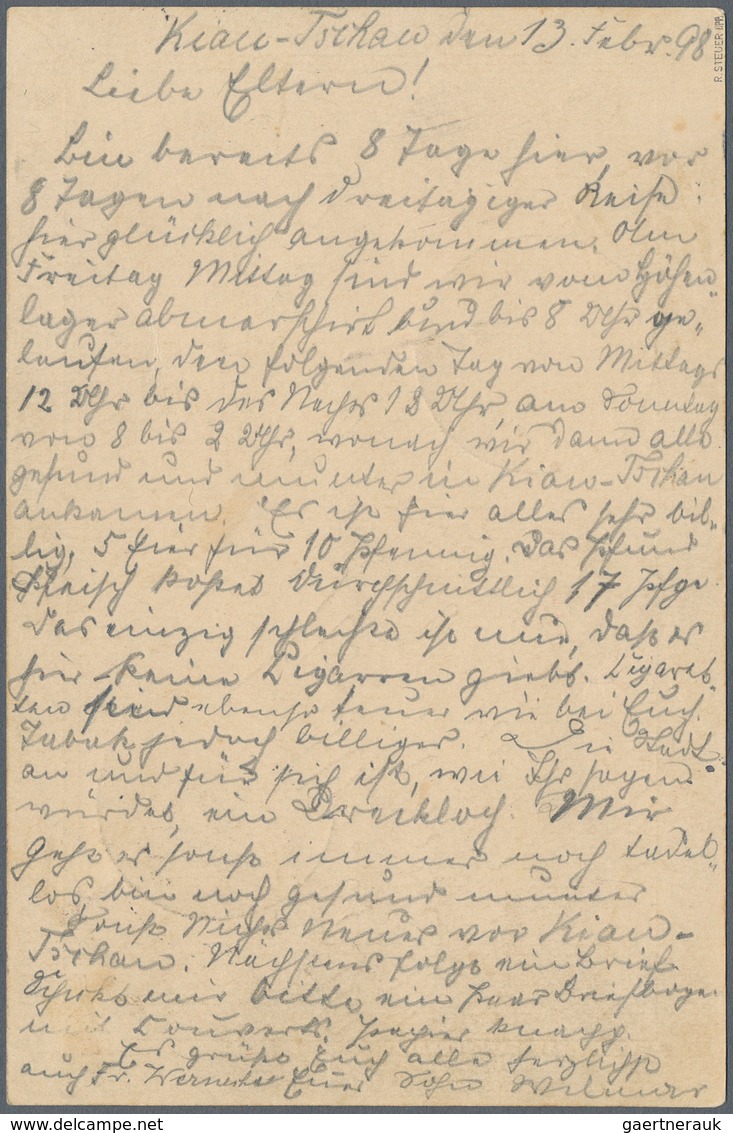 Kiau-Tschau den 13. Febr. 98
R. STEUER I.PR.
Liebe Eltern!
Bin bereits 8 Tage hier, vor
8 Tagen nach dreitägiger Reise
hier glücklich angekommen. Am
Freitag Mittag sind wir vom Höhen„
lager abmarschirt und bis 8 Uhr ge„
laufen, den folgenden Tag von Mittags
12 Uhr bis des Nachts 12 Uhr, am Sonntag
von 8 bis 2 Uhr, wonach wir dann alle
gesund und munter in Kiau-Tschau
ankamen. Es ist hier alles sehr bil„
lig, 5 Eier für 10 Pfennig. Das Pfund
Fleisch kostet durchschnittlich 17 Pfge
Das einzig schlechte ist nur, daß es
hier keine Cigarren giebt. Cigaret„
ten sind ebenso teuer wie bei Euch.
Tabak jedoch billiger. Die Stadt
an und für sich ist, wie Ihr sagen
würdet, ein Dreckloch. Mir
geht es sonst immer noch tadel„
los, bin noch gesund munter
Sonst Nichts Neues vor Kiau-
Tschau. Nächstens folgt ein Brief.
Schickt mir bitte ein paar Briefboge
mit Couverts. Papier knapp.
Es grüßt Euch alle herzlichst
auch Fr. Euer Sohn Wilmar
gaertnerauk